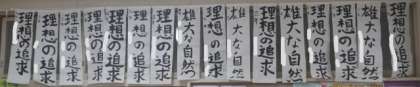 理想の追求
雄大な自然
理想の追求
理想の追求
雄大な自然
理想の追求
雄大な自然
理想の追求
雄大な自然
理想の追求
理想の追求
理想の追求
理想の追求
理想の追求
理想の追求
理想の追求